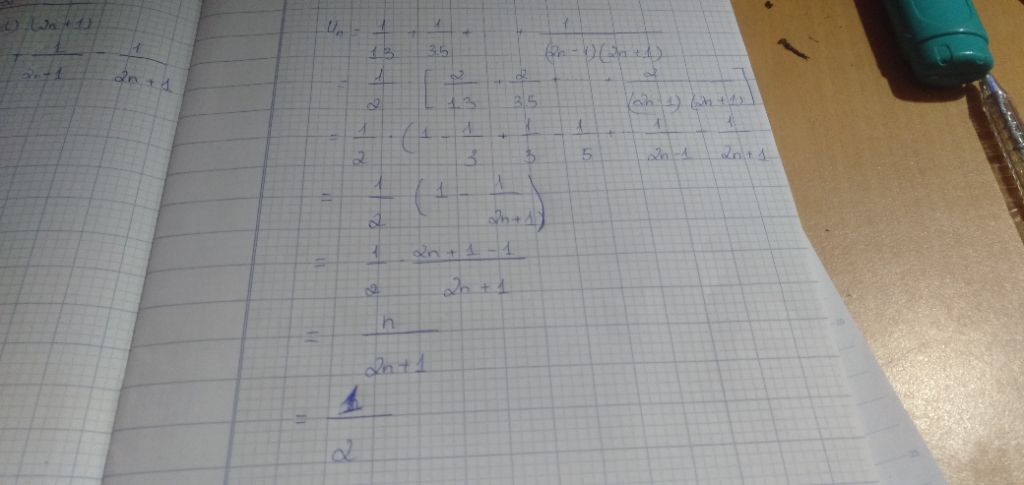 1) (2n+1)
+ 1/2n+1 - 1/2n+1
Un = 1/1.3 + 1/3.5 + . + 1/(2n-1)(2n+1)
= 1/2 [2/1.3 + 2/3.5 + . . 2/(2n-1)(2n+1)]
= 1/2 . (1 - 1/3 + 1/3 - 1/5 + . 1/2n-1 - 1/2n+1
= 1/2 (1 - 1/2n+1)
= 1/2 . 2n+1-1/2n+1
= n/2n+1
= 1/2